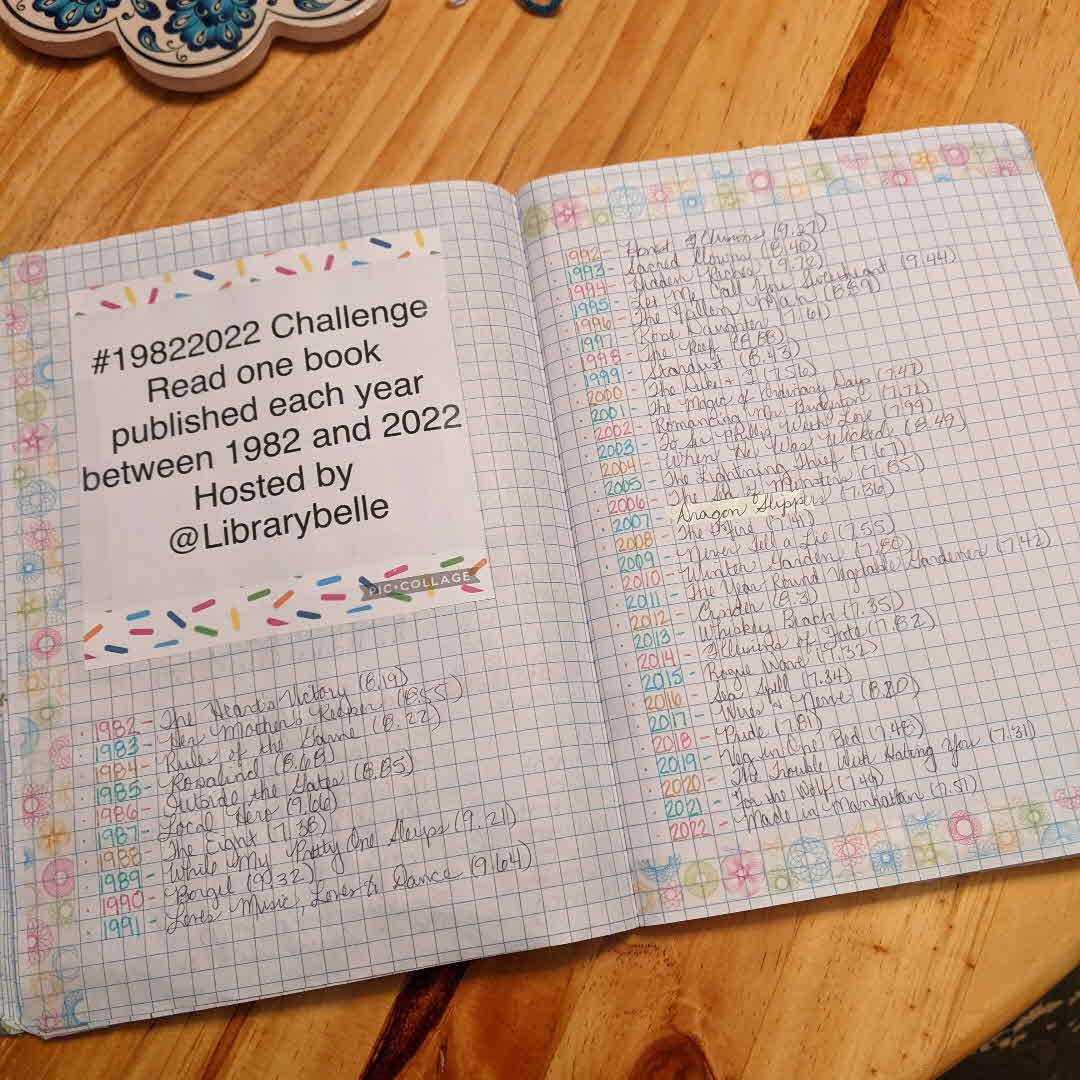 #19822022 Challenge
Read one book
published each year
between 1982 and 2022
Hosted by
@Librarybelle
PIC•COLLAGE
1982 - The Heart's Victory (8.19)
1983 - Her Mother's Keeper (8.85)
1984 - Rules of the Game (8.22)
1985 - Rosalind (8.68)
1986 - Outside the Gates (8.85)
1987 - Local Hero (9.66)
1988 - The Eight (7.38)
1989 - While My Pretty One Sleeps (9.21)
1990 - Borgel (9.32)
1991 - Loves Music, Loves to Dance (9.64)
1992 - Honest Illusions (9.27)
1993 - Sacred Clowns (8.40)
1994 - Hidden Riches (9.72)
1995 - Let Me Call You Sweetheart (9.44)
1996 - The Fallen Man (8.89)
1997 - Rose Daughter (7.61)
1998 - The Reef (8.88)
1999 - Stardust (8.43)
2000 - The Duke + I (7.56)
2001 - The Magic of Ordinary Days (9.47)
2002 - Romancing Mr. Bridgerton (7.71)
2003 - To Sir Phillip With Love (7.99)
2004 - When He Was Wicked (8.49)
2005 - The Lightning Thief (7.67)
2006 - The Sea of Monsters (7.85)
2007 - Dragon Slippers (7.36)
2008 - The Fire (7.41)
2009 - Never Tell a Lie (7.55)
2010 - Winter Garden (7.80)
2011 - The Year Round Vegetable Gardener (7.42)
2012 - Cinder (8.3)
2013 - Whiskey Beach (7.35)
2014 - Illusions of Fate (7.82)
2015 - Rogue Wave (7.32)
2016 - Sea Spell (7.34)
2017 - Wires + Nerve (8.80)
2018 - Pride (7.81)
2019 - Teg in One Bed (7.48)
2020 - The Trouble With Hating You (7.31)
2021 - For the Wolf (7.49)
2022 - Made in Manhattan (7.57)